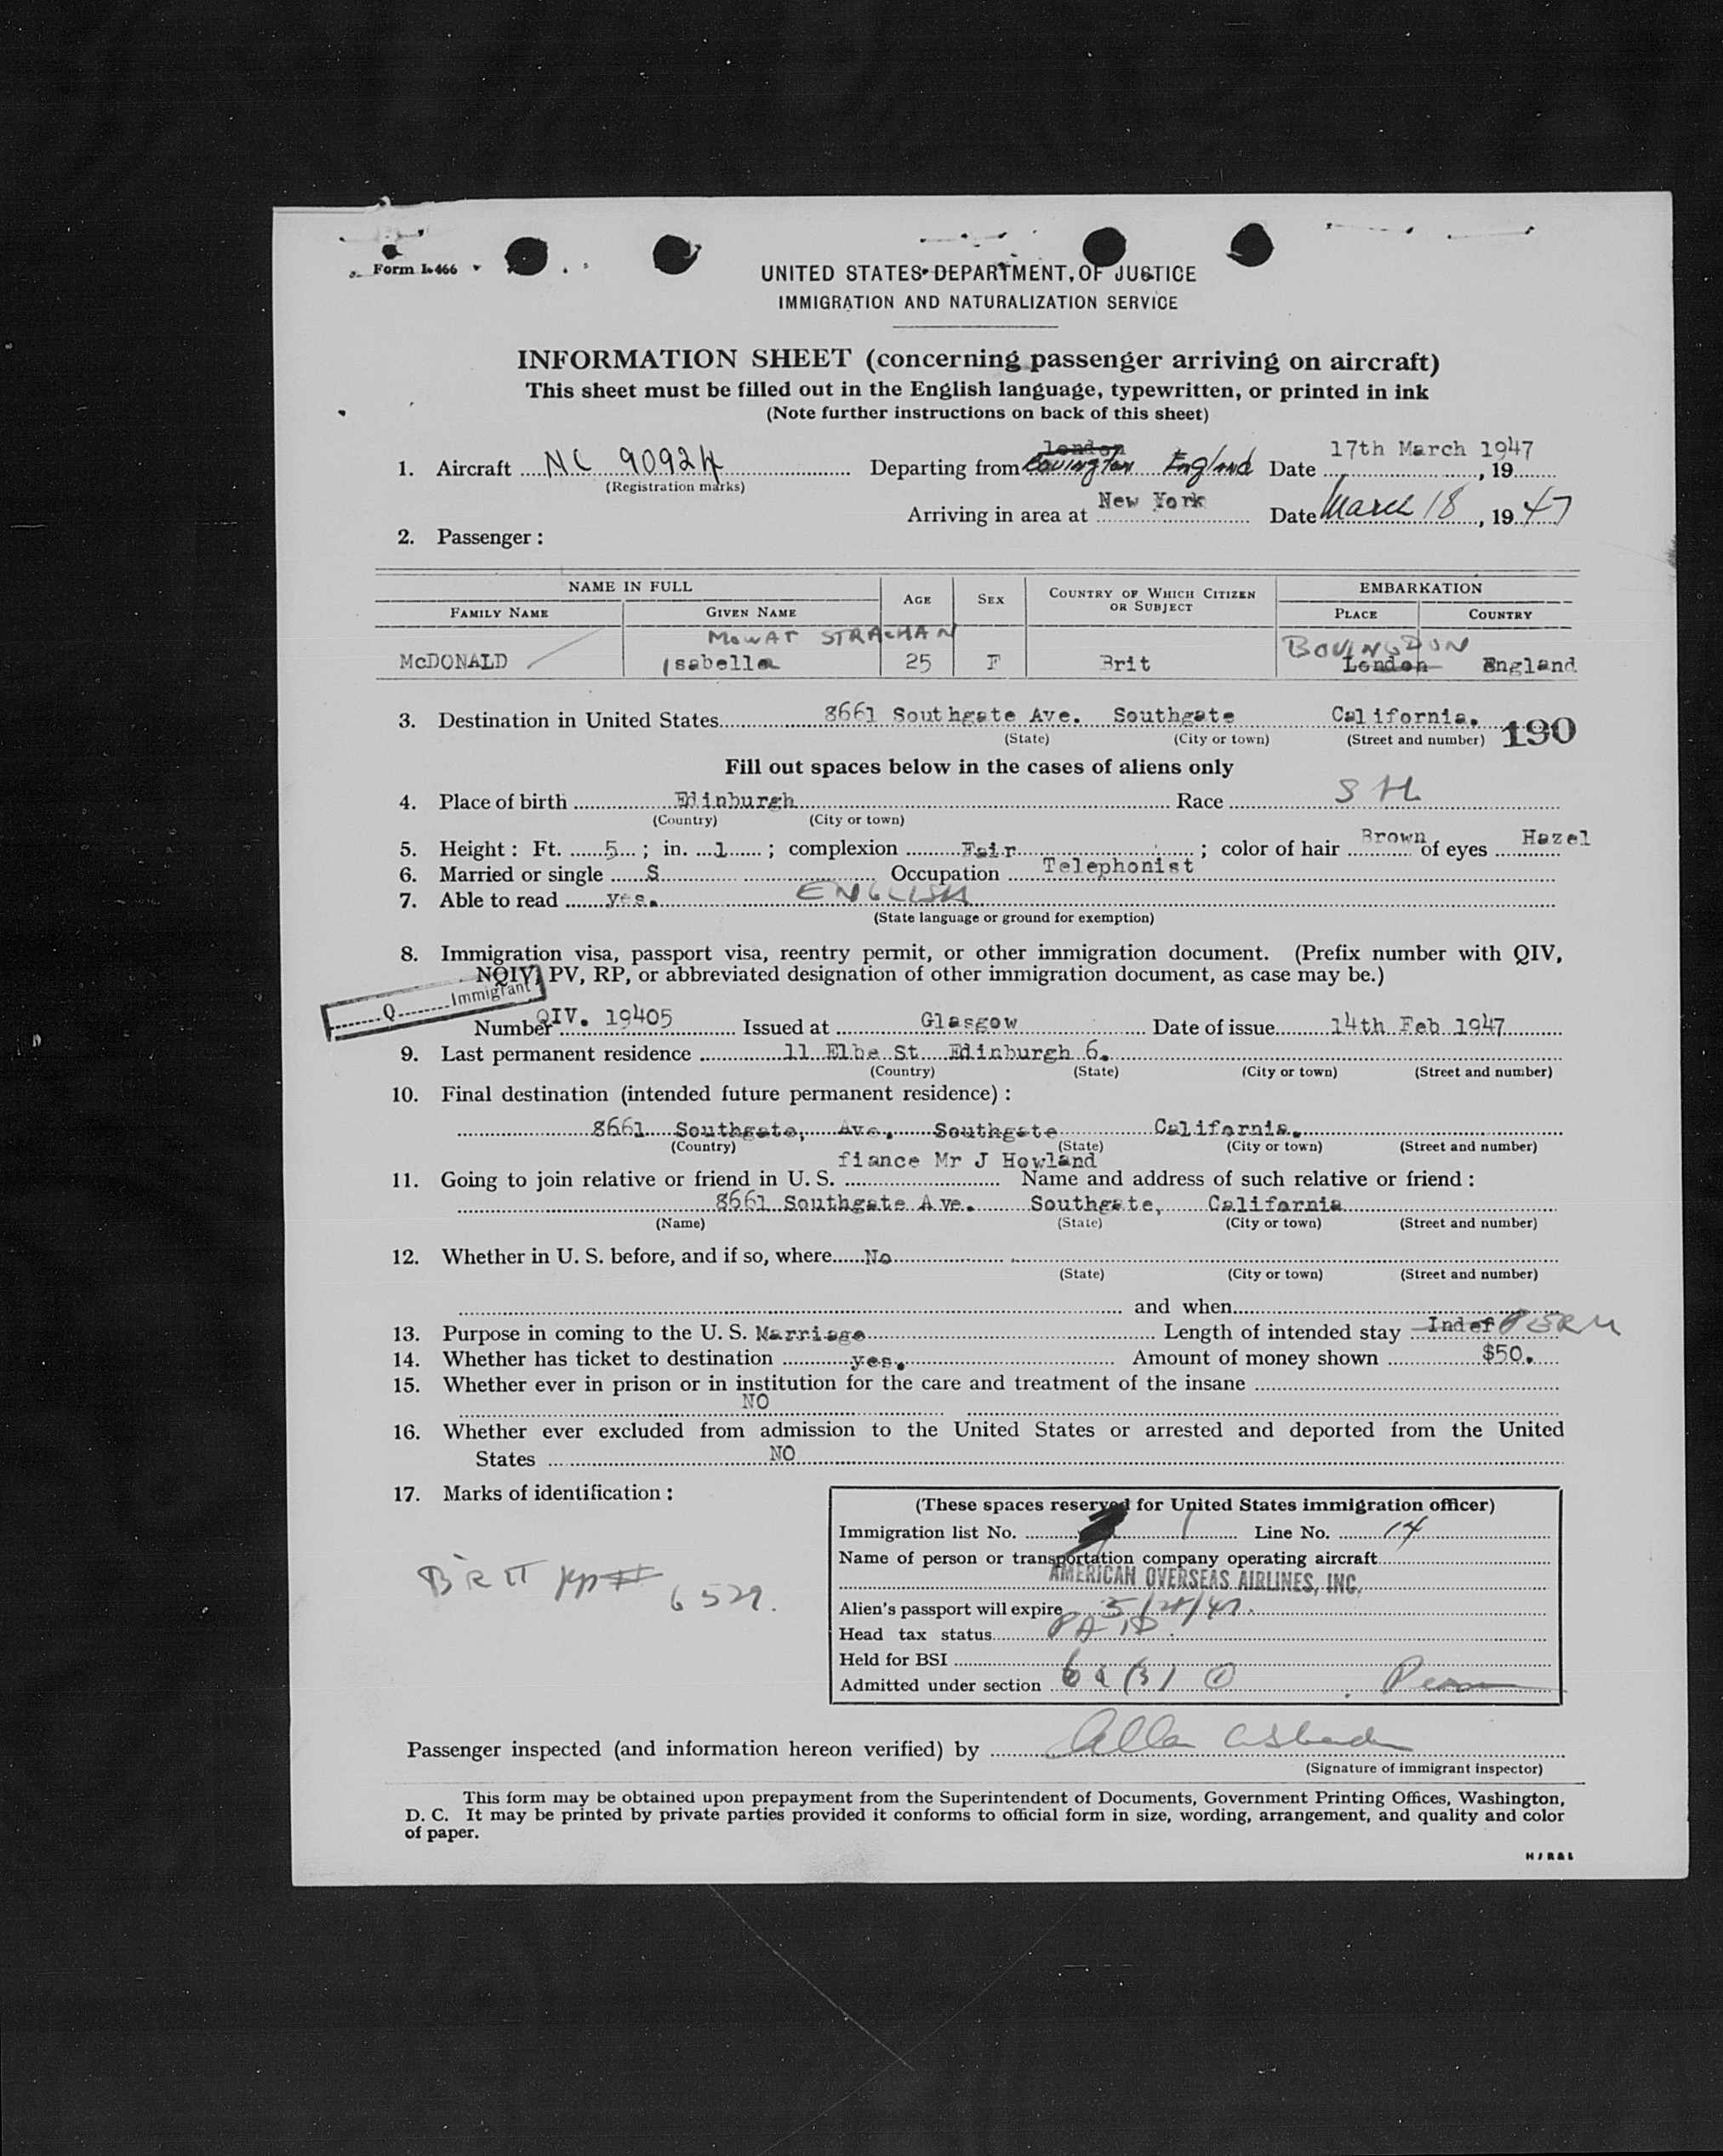 Form I-466
UNITED STATES DEPARTMENT OF JUSTICE
IMMIGRATION AND NATURALIZATION SERVICE
INFORMATION SHEET (concerning passenger arriving on aircraft)
This sheet must be filled out in the English language, typewritten, or printed in ink
(Note further instructions on back of this sheet)
London 17th March 1947
1. Aircraft NC 90924 Departing from Bovington England Date , 19
(Registration marks)
Arriving in area at New York Date March 18, 1947
2. Passenger :
NAME IN FULL AGE SEX COUNTRY OF WHICH CITIZEN OR SUBJECT EMBARKATION
FAMILY NAME GIVEN NAME PLACE COUNTRY
MOWAT STRACHAN BOVINGDON
McDONALD Isabella 25 F Brit London England
3. Destination in United States 8661 Southgate Ave. Southgate California.
(State) (City or town) (Street and number) 190
Fill out spaces below in the cases of aliens only
4. Place of birth Edinburgh Race
(Country) (City or town)
5. Height : Ft. 5 ; in. 1 ; complexion Fair ; color of hair Brown of eyes Hazel
6. Married or single S Occupation Telephonist
7. Able to read yes. ENGLISH
(State language or ground for exemption)
8. Immigration visa, passport visa, reentry permit, or other immigration document. (Prefix number with QIV,
NQIV, PV, RP, or abbreviated designation of other immigration document, as case may be.)
Q Immigrant
Number QIV. 19405 Issued at Glasgow Date of issue 14th Feb 1947
9. Last permanent residence 11 Elbe St Edinburgh 6.
(Country) (State) (City or town) (Street and number)
10. Final destination (intended future permanent residence) :
8661 Southgate, Ave, Southgate California.
(Country) (State) (City or town) (Street and number)
fiance Mr J Howland
11. Going to join relative or friend in U. S. Name and address of such relative or friend :
8661 Southgate Ave. Southgate, California
(Name) (State) (City or town) (Street and number)
12. Whether in U. S. before, and if so, where No
(State) (City or town) (Street and number)
and when
13. Purpose in coming to the U. S. Marriage Length of intended stay Indef PERM
14. Whether has ticket to destination yes. Amount of money shown $50.
15. Whether ever in prison or in institution for the care and treatment of the insane
NO
16. Whether ever excluded from admission to the United States or arrested and deported from the United
States NO
17. Marks of identification :
BRIT pp# 6529.
(These spaces reserved for United States immigration officer)
Immigration list No. 1 Line No. 14
Name of person or transportation company operating aircraft
AMERICAN OVERSEAS AIRLINES, INC.
Alien's passport will expire
Head tax status PAID.
Held for BSI
Admitted under section 6a(3) ① Perm
Passenger inspected (and information hereon verified) by Allan
(Signature of immigrant inspector)
This form may be obtained upon prepayment from the Superintendent of Documents, Government Printing Offices, Washington,
D. C. It may be printed by private parties provided it conforms to official form in size, wording, arrangement, and quality and color
of paper.